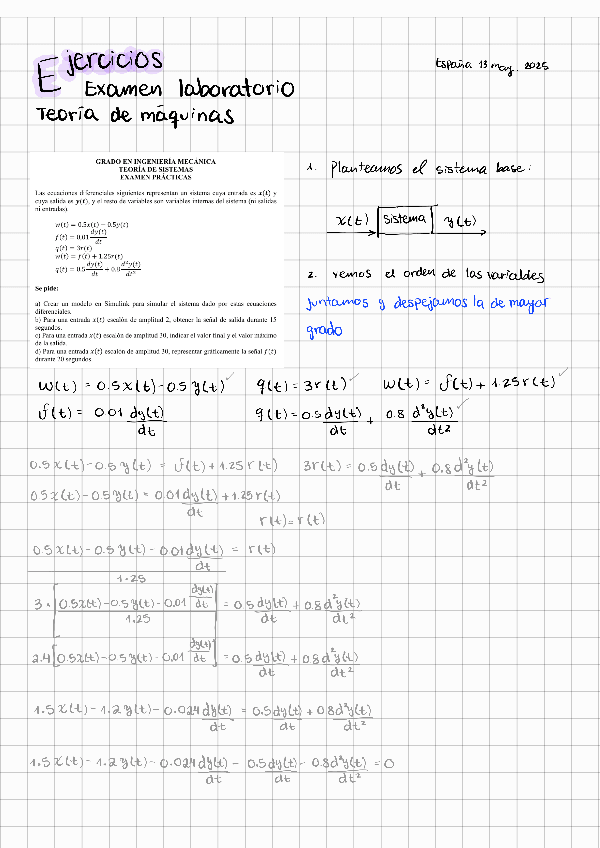 Ejercicios
Examen laboratorio
Teoría de máquinas
España 13 may. 2025
GRADO EN INGENIERÍA MECANICA
TEORÍA DE SISTEMAS
EXAMEN PRÁCTICAS
Las ecuaciones diferenciales siguientes representan un sistema cuya entrada es x(t) y
cuya salida es y(t), y el resto de variables son variables internas del sistema (ni salidas
ni entradas).
w(t) = 0.5x(t) − 0.5y(t)
f(t) = 0.01 dy(t)/dt
q(t) = 3r(t)
w(t) = f(t) + 1.25r(t)
q(t) = 0.5 dy(t)/dt + 0.8 d²y(t)/dt²
Se pide:
a) Crear un modelo en Simulink para simular el sistema dado por estas ecuaciones
diferenciales.
b) Para una entrada x(t) escalón de amplitud 2, obtener la señal de salida durante 15
segundos.
c) Para una entrada x(t) escalón de amplitud 30, indicar el valor final y el valor máximo
de la salida.
d) Para una entrada x(t) escalon de amplitud 30, representar gráficamente la señal f(t)
durante 20 segundos.
1. Planteamos el sistema base:
x(t) Sistema y(t)
2. vemos el orden de las variables
juntamos y despejamos la de mayor
grado
w(t) = 0.5x(t) - 0.5y(t) ✓ q(t) = 3r(t) ✓ w(t) = f(t) + 1.25r(t) ✓
f(t) = 0.01 dy(t)/dt q(t) = 0.5 dy(t)/dt + 0.8 d²y(t)/dt² ✓
0.5x(t) - 0.5y(t) = f(t) + 1.25 r(t) 3r(t) = 0.5 dy(t)/dt + 0.8 d²y(t)/dt²
0.5x(t) - 0.5y(t) = 0.01 dy(t)/dt + 1.25 r(t)
r(t) = r(t)
(0.5x(t) - 0.5y(t) - 0.01 dy(t)/dt)/1.25 = r(t)
3 · [(0.5x(t) - 0.5y(t) - 0.01 dy(t)/dt)/1.25] = 0.5 dy(t)/dt + 0.8 d²y(t)/dt²
2.4 [0.5x(t) - 0.5y(t) - 0.01 dy(t)/dt] = 0.5 dy(t)/dt + 0.8 d²y(t)/dt²
1.5x(t) - 1.2y(t) - 0.024 dy(t)/dt = 0.5 dy(t)/dt + 0.8 d²y(t)/dt²
1.5x(t) - 1.2y(t) - 0.024 dy(t)/dt - 0.5 dy(t)/dt - 0.8 d²y(t)/dt² = 0